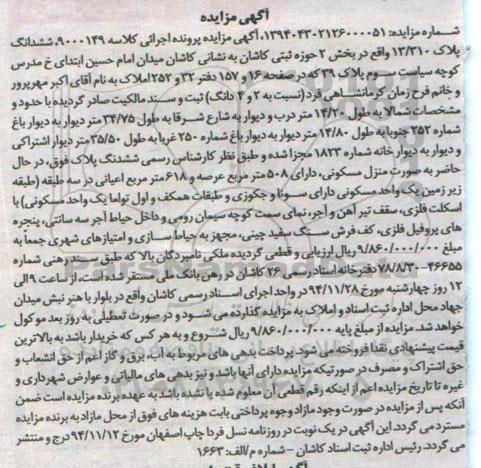 آگهی مزایده
شـماره مزایده: ۱۳۹۴۰۴۳۰۲۱۲۶۰۰۰۰۵۱، آگهی مزایده پرونده اجرائی کلاسه ۹۰۰۰۱۴۹، ششدانگ
پلاک ۱۳/۳۱۰ واقع در بخش ۲ حوزه ثبتی کاشان به نشانی کاشان میدان امام حسین ابتدای خ مدرس
کوچه سیاست سـوم پلاک ۳۹ که در صفحه ۱۶ و ۱۵۷ دفتر ۳۲ و ۲۵۲ املاک به نام آقای اکبر مهرپرور
و خانم فرح زمان کرمانشـاهی فرد (نسبت به ۲ و ۴ دانگ) ثبت و سـند مالکیت صادر گردیده با حدود و
مشخصات شمالا به طول ۱۴/۲۰ متر درب و دیوار به شارع شـرقا به طول ۳۴/۷۵ متر دیوار به دیوار باغ
شماره ۲۵۲ جنوبا به طول ۱۴/۸۰ متر دیوار به دیوار باغ شماره ۲۵۰ غربا به طول ۳۵/۵۰ متر دیوار اشتراکی
و دیوار به دیوار خانه شماره ۱۸۲۳ مجزا شده و طبق نظر کارشناس رسمی ششدنگ پلاک فوق، در حال
حاضر به صورت منزل مسکونی، دارای ۵۰۸ متر مربع عرصه و ۶۱۸ متر مربع اعیانی در سه طبقه (طبقه
زیر زمین یک واحد مسکونی دارای سـونا و جکوزی و طبقات همکف و اول تواما یک واحد مسکونی) با
اسکلت فلزی، سقف تیر آهن و آجر، نمای سمت کوچه سیمان رومی و داخل حیاط آجر سه سانتی، پنجره
های پروفیل فلزی، کف فرش سنـگ سفید چینی، مجهز به حیاط سـازی و امتیازهای شهری جمعا به
مبلغ ۹/۸۶۰/۰۰۰/۰۰۰ ریال ارزیابی و قطعی گردیده ملکی نامبردگان بالا که طبق سـند رهنی شماره
۴۶۶۵۵-۷۸/۸/۳۰ دفترخانه اسناد رسمی ۲۶ کاشان در رهن بانک ملی مستقر شده است، از ساعت ۹ الی
۱۲ روز چهارشنبه مورخ ۹۴/۱۱/۲۸ در واحد اجرای اسـناد رسمی کاشان واقع در بلوار باهنر نبش میدان
جهاد محل اداره ثبت اسناد و املاک به مزایده گذارده می شـود و در صورت تعطیلی به روز بعد موکول
خواهد شد. مزایده از مبلغ پایه ۹/۸۶۰/۰۰۰/۰۰۰ ریال شـروع و به هر کس که خریدار باشد به بالاترین
قیمت پیشنهادی نقدا فروخته می شود. پرداخت بدهی های مربوط به آب، برق و گاز اعم از حق انشعاب و
حق اشتراک و مصرف در صورتیکه مزایده دارای آنها باشد و نیز بدهی های مالیاتی و عوارض شهرداری و
غیره تا تاریخ مزایده اعم از اینکه رقم قطعی آن معلوم شده یا نشده باشد به عهده برنده مزایده است ضمن
آنکه پس از مزایده در صورت وجود مازاد وجوه پرداختی بابت هزینه های فوق از محل مازاد به برنده مزایده
مسترد می گردد. این آگهی در یک نوبت در روزنامه نسل فردا چاپ اصفهان مورخ ۹۴/۱۱/۱۲ درج و منتشر
می گردد. رئیس اداره ثبت اسناد کاشان - شماره م/الف: ۱۶۶۳